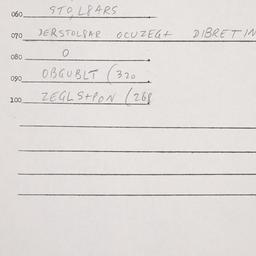 060 STOL8ARS
070 DERSTOL8AR OCUZEG+ DIBRETIN
080 O
090 OBGUBLT (320
100 ZEGLS+PON (268